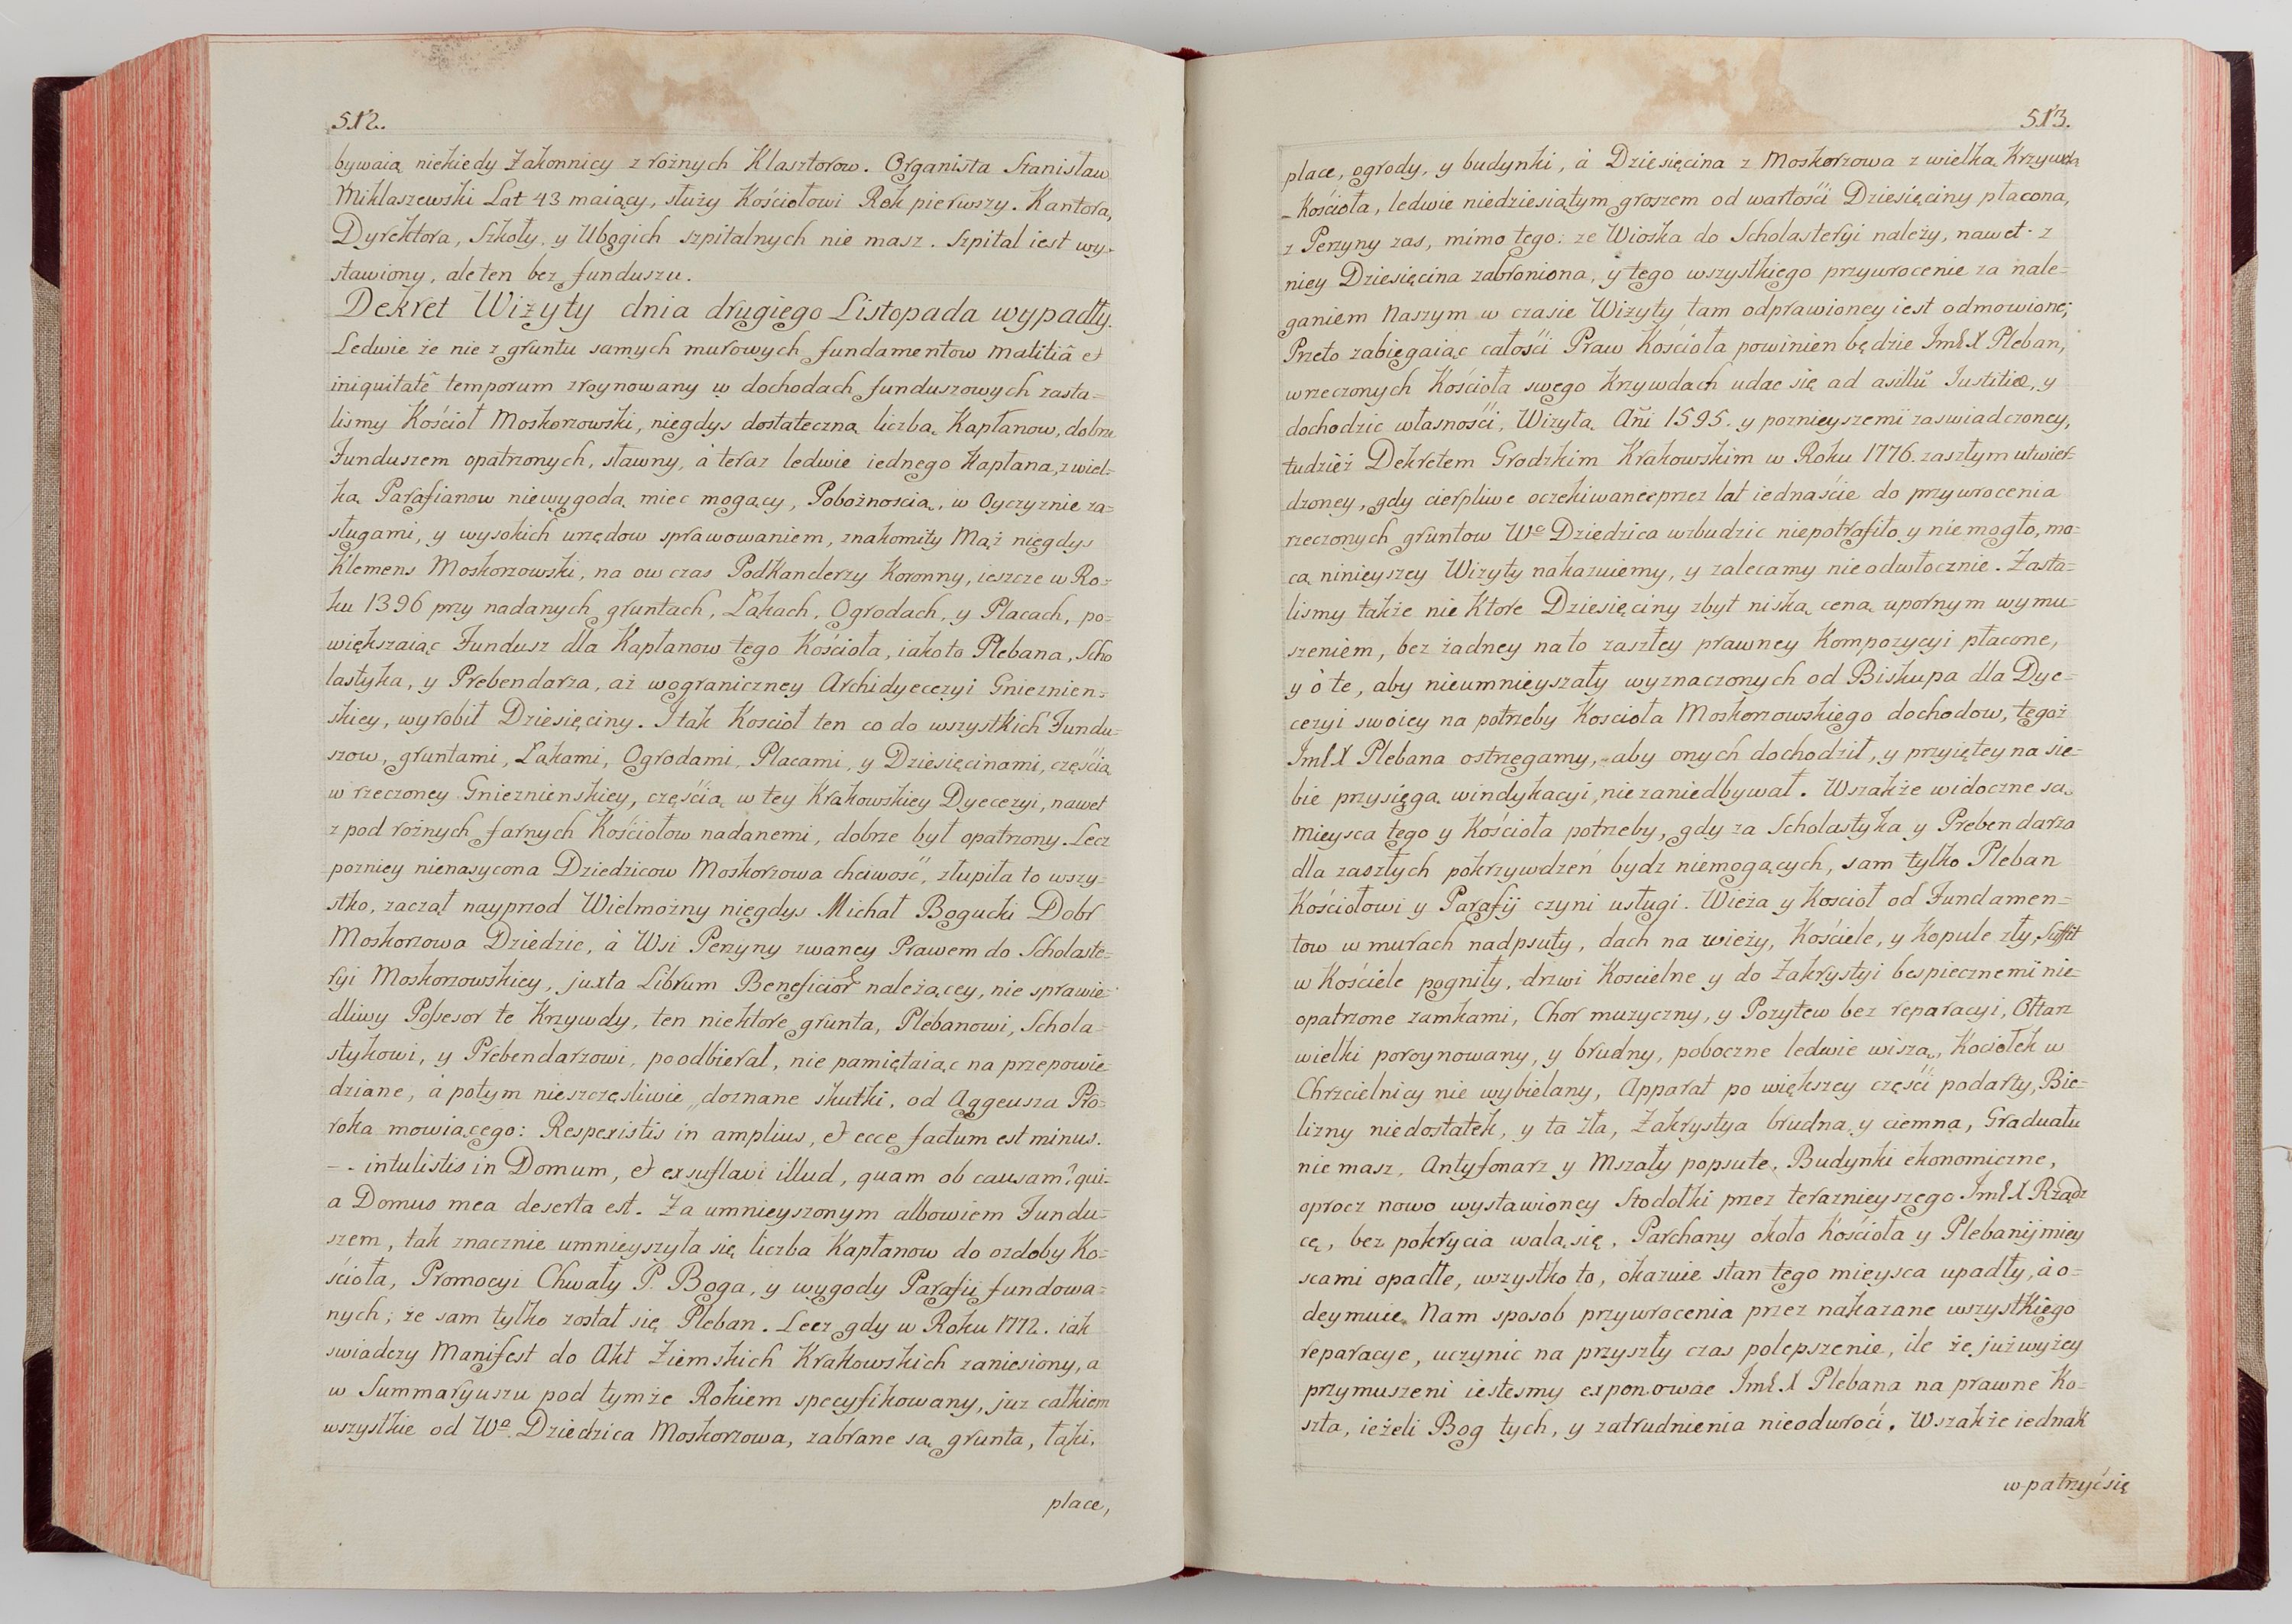 512.
bywaią niekiedy Zakonnicy z rożnych Klasztorow. Organista Stanisław
Miklaszewski Lat 43 maiący, służy Kościołowi Rok pierwszy. Kantora,
Dyrektora, Szkoły, y Ubogich szpitalnych nie masz. Szpital iest wy-
stawiony, ale ten bez funduszu.
Dekret Wizyty dnia drugiego Listopada wypadły.
Ledwie że nie z gruntu samych murowych fundamentow malitiâ et
iniquitatê temporum zroynowany w dochodach funduszowych zasta=
lismy Kościoł Moskorzowski, niegdys dostateczną liczbą Kapłanow, dobrze
Funduszem opatrzonych, sławny, à teraz ledwie iednego Kapłana, z wiel=
ką Parafianow niewygodą, miec mogący, Pobożnoscią, w Oyczyznie za=
sługami, y wysokich urzędow sprawowaniem, znakomity Mąż niegdys
Klemens Moskorzowski, na ow czas PodKanclerzy Koronny, ieszcze w Ro=
ku 1396 przy nadanych gruntach, Łąkach, Ogrodach, y Placach, po=
większaiąc Fundusz dla Kapłanow tego Kościoła, iako to Plebana, Scho
lastyka, y Prebendarza, aż w ograniczney Archidyecezyi Gnieznien=
skiey, wyrobił Dziesięciny. I tak Koscioł ten co do wszystkich Fundu=
szow, gruntami, Łąkami, Ogrodami, Placami, y Dziesięcinami, częścią
w rzeczoney Gnieznienskiey, częścią w tey Krakowskiey Dyecezyi, nawet
z pod rożnych farnych Kościołow nadanemi, dobrze był opatrzony. Lecz
pozniey nienasycona Dziedzicow Moskorzowa chciwość, złupiła to wszy=
stko, zaczął nayprzod Wielmożny niegdys Michał Bogucki Dobr
Moskorzowa Dziedzic, à Wsi Perzyny zwaney Prawem do Scholaste=
ryi Moskorzowskiey, juxta Librum Beneficior należącey, nie sprawie=
dliwy Possesor te Krzywdy, ten niektore grunta, Plebanowi, Schola=
stykowi, y Prebendarzowi, poodbierał, nie pamiętaiąc na przepowie=
dziane, à potym nieszczęsliwie doznane skutki, od Aggeusza Pro=
roka mowiącego: Respexistis in amplius, et ecce factum est minus.
- - intulistis in Domum, et exsuflavi illud, quam ob causam? qui=
a Domus mea deserta est. Za umnieyszonym albowiem Fundu=
szem, tak znacznie umnieyszyła się liczba Kapłanow do ozdoby Ko=
ścioła, Promocyi Chwały P. Boga, y wygody Parafii fundowa=
nych; że sam tylko został się Pleban. Lecz gdy w Roku 1772. iak
swiadczy Manifest do Akt Ziemskich Krakowskich zaniesiony, a
w Summaryuszu pod tymże Rokiem specyfikowany, juz całkiem
wszystkie od Wo. Dziedzica Moskorzowa, zabrane są grunta, łąki,
place,
513.
place, ogrody, y budynki, à Dziesięcina z Moskorzowa z wielką Krzywdą
- Kościoła, ledwie niedziesiątym groszem od wartości Dziesięciny płacona,
z Perzyny zas, mimo tego: że Wioska do Scholasteryi należy, nawet z
niey Dziesięcina zabroniona, y tego wszystkiego przywrocenie za nale=
ganiem Naszym w czasie Wizyty tam odprawioney iest odmowione;
Przeto zabiegaiąc całości Praw Kościoła powinien będzie ImX Pleban,
w rzeczonych Kościoła swego Krzywdach udac się ad asillũ Iustitiæ, y
dochodzic własności, Wizytą Añi 1595. y poznieyszemi zaswiadczoney,
tudzież Dekretem Grodzkim Krakowskim w Roku 1776. zaszłym utwier=
dzoney, gdy cierpliwe oczekiwanie przez lat iednaście do przywrocenia
rzeczonych gruntow Wo Dziedzica wzbudzic niepotrafiło y nie mogło, mo=
cą ninieyszey Wizyty nakazuiemy, y zalecamy nieodwłocznie. Zasta=
lismy także nie Ktore Dziesięciny zbyt niską ceną upornym wymu=
szeniem, bez żadney na to zaszłey prawney Kompozycyi płacone,
y ò te, aby nieumnieyszały wyznaczonych od Biskupa dla Dye=
cezyi swoiey na potrzeby Koscioła Moskorzowskiego dochodow, tegoż
ImX Plebana ostrzegamy, aby onych dochodził, y przyiętey na sie=
bie przysięgą windykacyi, nie zaniedbywał. Wszakże widoczne są
mieysca tego y Kościoła potrzeby, gdy za Scholastyka y Prebendarza
dla zaszłych pokrzywdzeń bydz niemogących, sam tylko Pleban
Kościołowi y Parafij czyni usługi. Wieża y Koscioł od Fundamen=
tow w murach nadpsuty, dach na wieży, Kościele, y Kopule zły, Suffit
w Kościele pogniły, drzwi Koscielne y do Zakrystyi bespiecznemi nie=
opatrzone zamkami, Chor muzyczny, y Pozytew bez reparacyi, Ołtarz
wielki poroynowany, y brudny, poboczne ledwie wiszą, Kociołek w
Chrzcielnicy nie wybielany, Apparat po większey części podarty, Bie=
lizny niedostatek, y ta zła, Zakrystya brudna y ciemna, Graduału
nie masz, Antyfonarz y Mszały popsute, Budynki ekonomiczne,
oprocz nowo wystawioney Stodołki przez teraznieyszego ImX Rządz
cę, bez pokrycia walą się, Parchany około Kościoła y Plebanij miey
scami opadłe, wszystko to, okazuie stan tego mieysca upadły, à o=
deymuie Nam sposob przywrocenia przez nakazane wszystkiego
reparacye, uczynic na przyszły czas polepszenie, ile że już wyżey
przymuszeni iestesmy exponowac ImX Plebana na prawne Ko=
szta, ieżeli Bog tych, y zatrudnienia nieodwroci. Wszakże iednak
wpatrzyć się